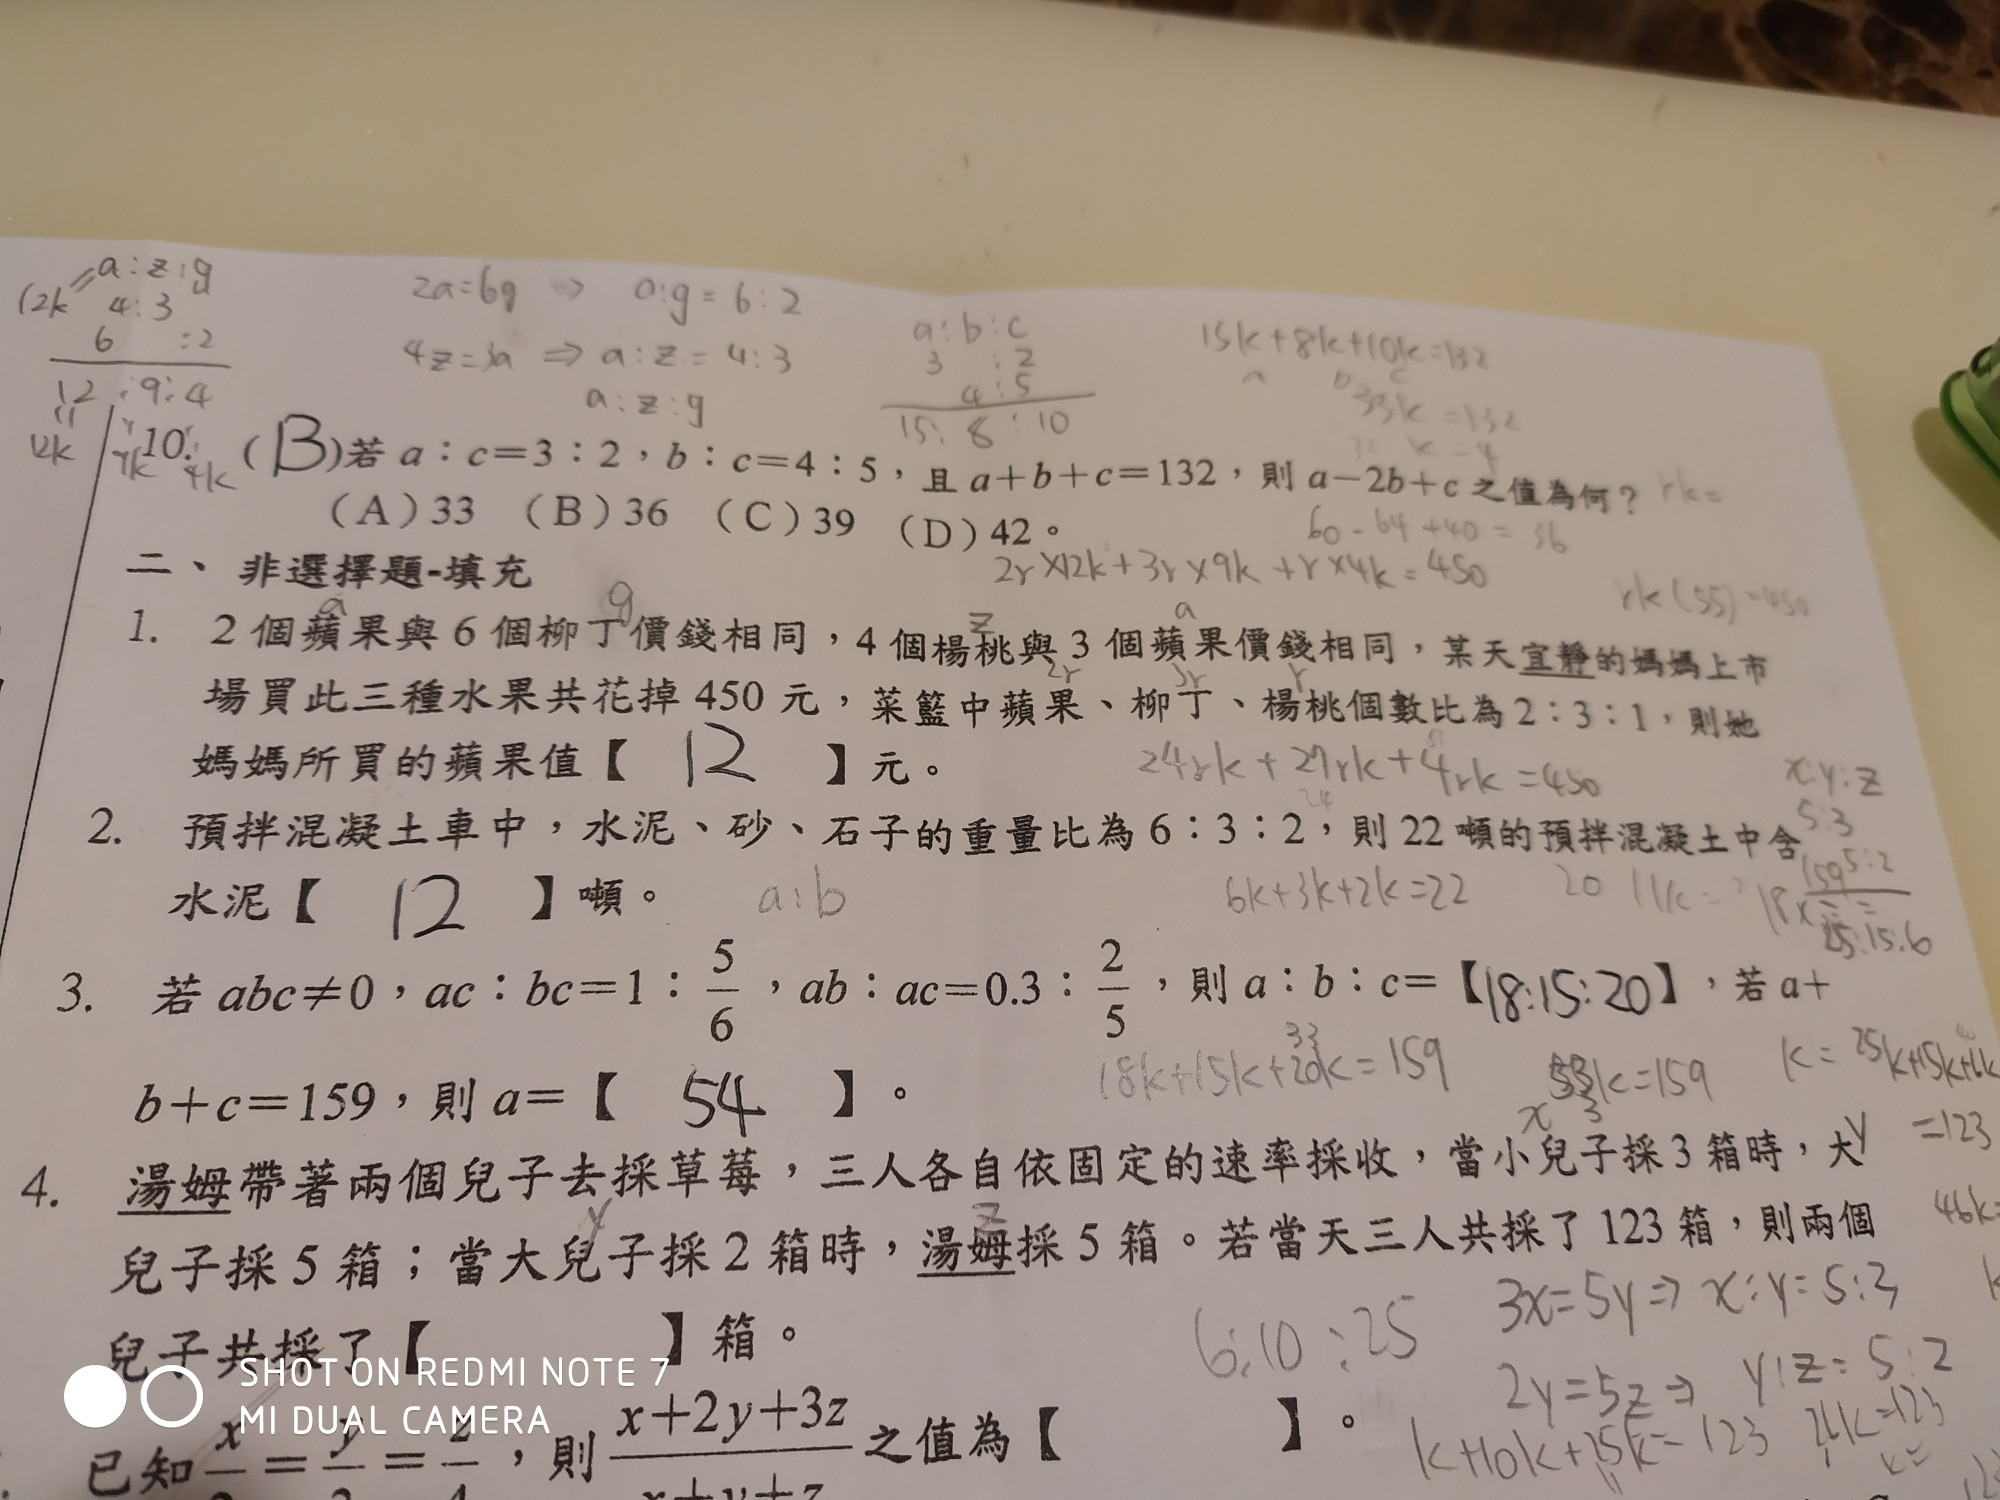 a:z:g
12k 4:3
6 :2
12:9:4
12k 9k 4k
2a=6g ⇒ a:g=6:2
4z=3a ⇒ a:z=4:3
a:z:g
a:b:c
3 :2
4:5
15:8:10
15k+8k+10k=132
a b c
33k=132
k=4
10. (B)若 a：c=3：2，b：c=4：5，且 a+b+c=132，則 a-2b+c 之值為何？ rk=
(A)33 (B)36 (C)39 (D)42。
60-64+40=36
二、非選擇題-填充
2r×12k+3r×9k+r×4k=450
rk(55)=450
a g z a
1. 2 個蘋果與 6 個柳丁價錢相同，4 個楊桃與 3 個蘋果價錢相同，某天宜靜的媽媽上市
2r 3r r
場買此三種水果共花掉 450 元，菜籃中蘋果、柳丁、楊桃個數比為 2：3：1，則她
媽媽所買的蘋果值【 12 】元。
24rk+27rk+4rk=450
x:y:z
5:3
5:2
25:15:6
2. 預拌混凝土車中，水泥、砂、石子的重量比為 6：3：2，則 22 噸的預拌混凝土中含
水泥【 12 】噸。 a:b 6k+3k+2k=22 20 11k=
3. 若 abc≠0，ac：bc=1：5/6，ab：ac=0.3：2/5，則 a：b：c=【18:15:20】，若 a+
b+c=159，則 a=【 54 】。
18k+15k+20k=159 53k=159
33
3
k=25k+15k+6k
=123
46k=
x y
4. 湯姆帶著兩個兒子去採草莓，三人各自依固定的速率採收，當小兒子採 3 箱時，大
y z
兒子採 5 箱；當大兒子採 2 箱時，湯姆採 5 箱。若當天三人共採了 123 箱，則兩個
兒子共採了【 】箱。
6:10:25
3x=5y⇒x:y=5:3
2y=5z⇒ y:z=5:2
k+10k+25k=123
已知 x/2=y/3=z/4，則 x+2y+3z/x+y+z 之值為【 】。
SHOT ON REDMI NOTE 7
MI DUAL CAMERA